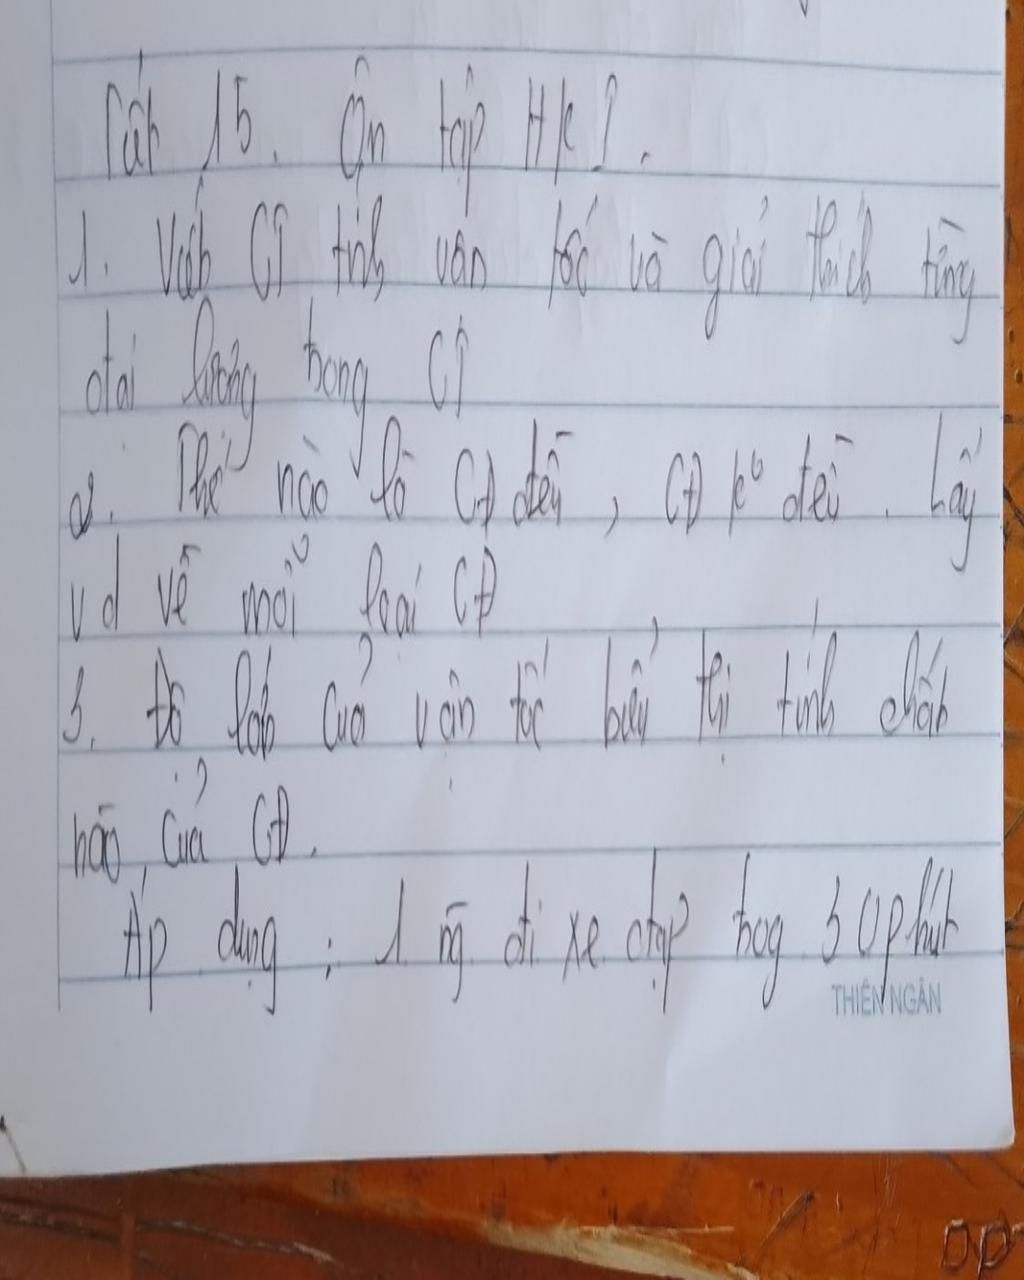 Tiết 15. Ôn tập HKI.
1. Viết CT tính vận tốc và giải thích từng
đại lượng trong CT
2. Thế nào là CĐ đều, CĐ k° đều. Lấy
vd về mỗi loại CĐ
3. Độ lớn của vận tốc biểu thị tính chất
nào của CĐ.
Áp dụng: 1 ng đi xe đạp trog 30 phút
THIÊN NGÂN